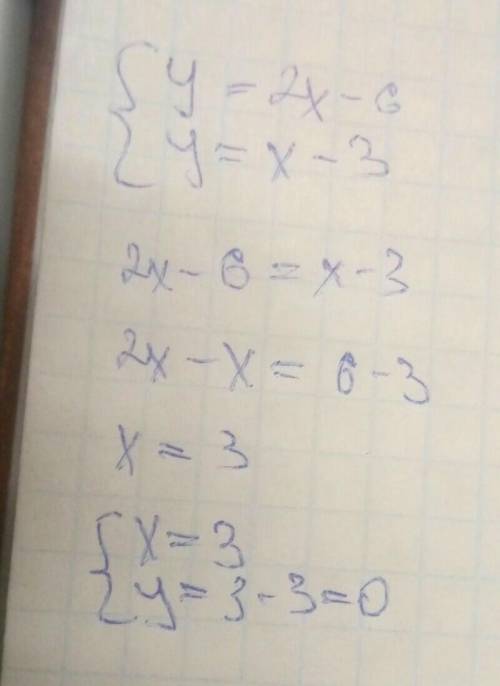 { y = 2x - 6
{ y = x - 3
2x - 6 = x - 3
2x - x = 6 - 3
x = 3
{ x = 3
{ y = 3 - 3 = 0